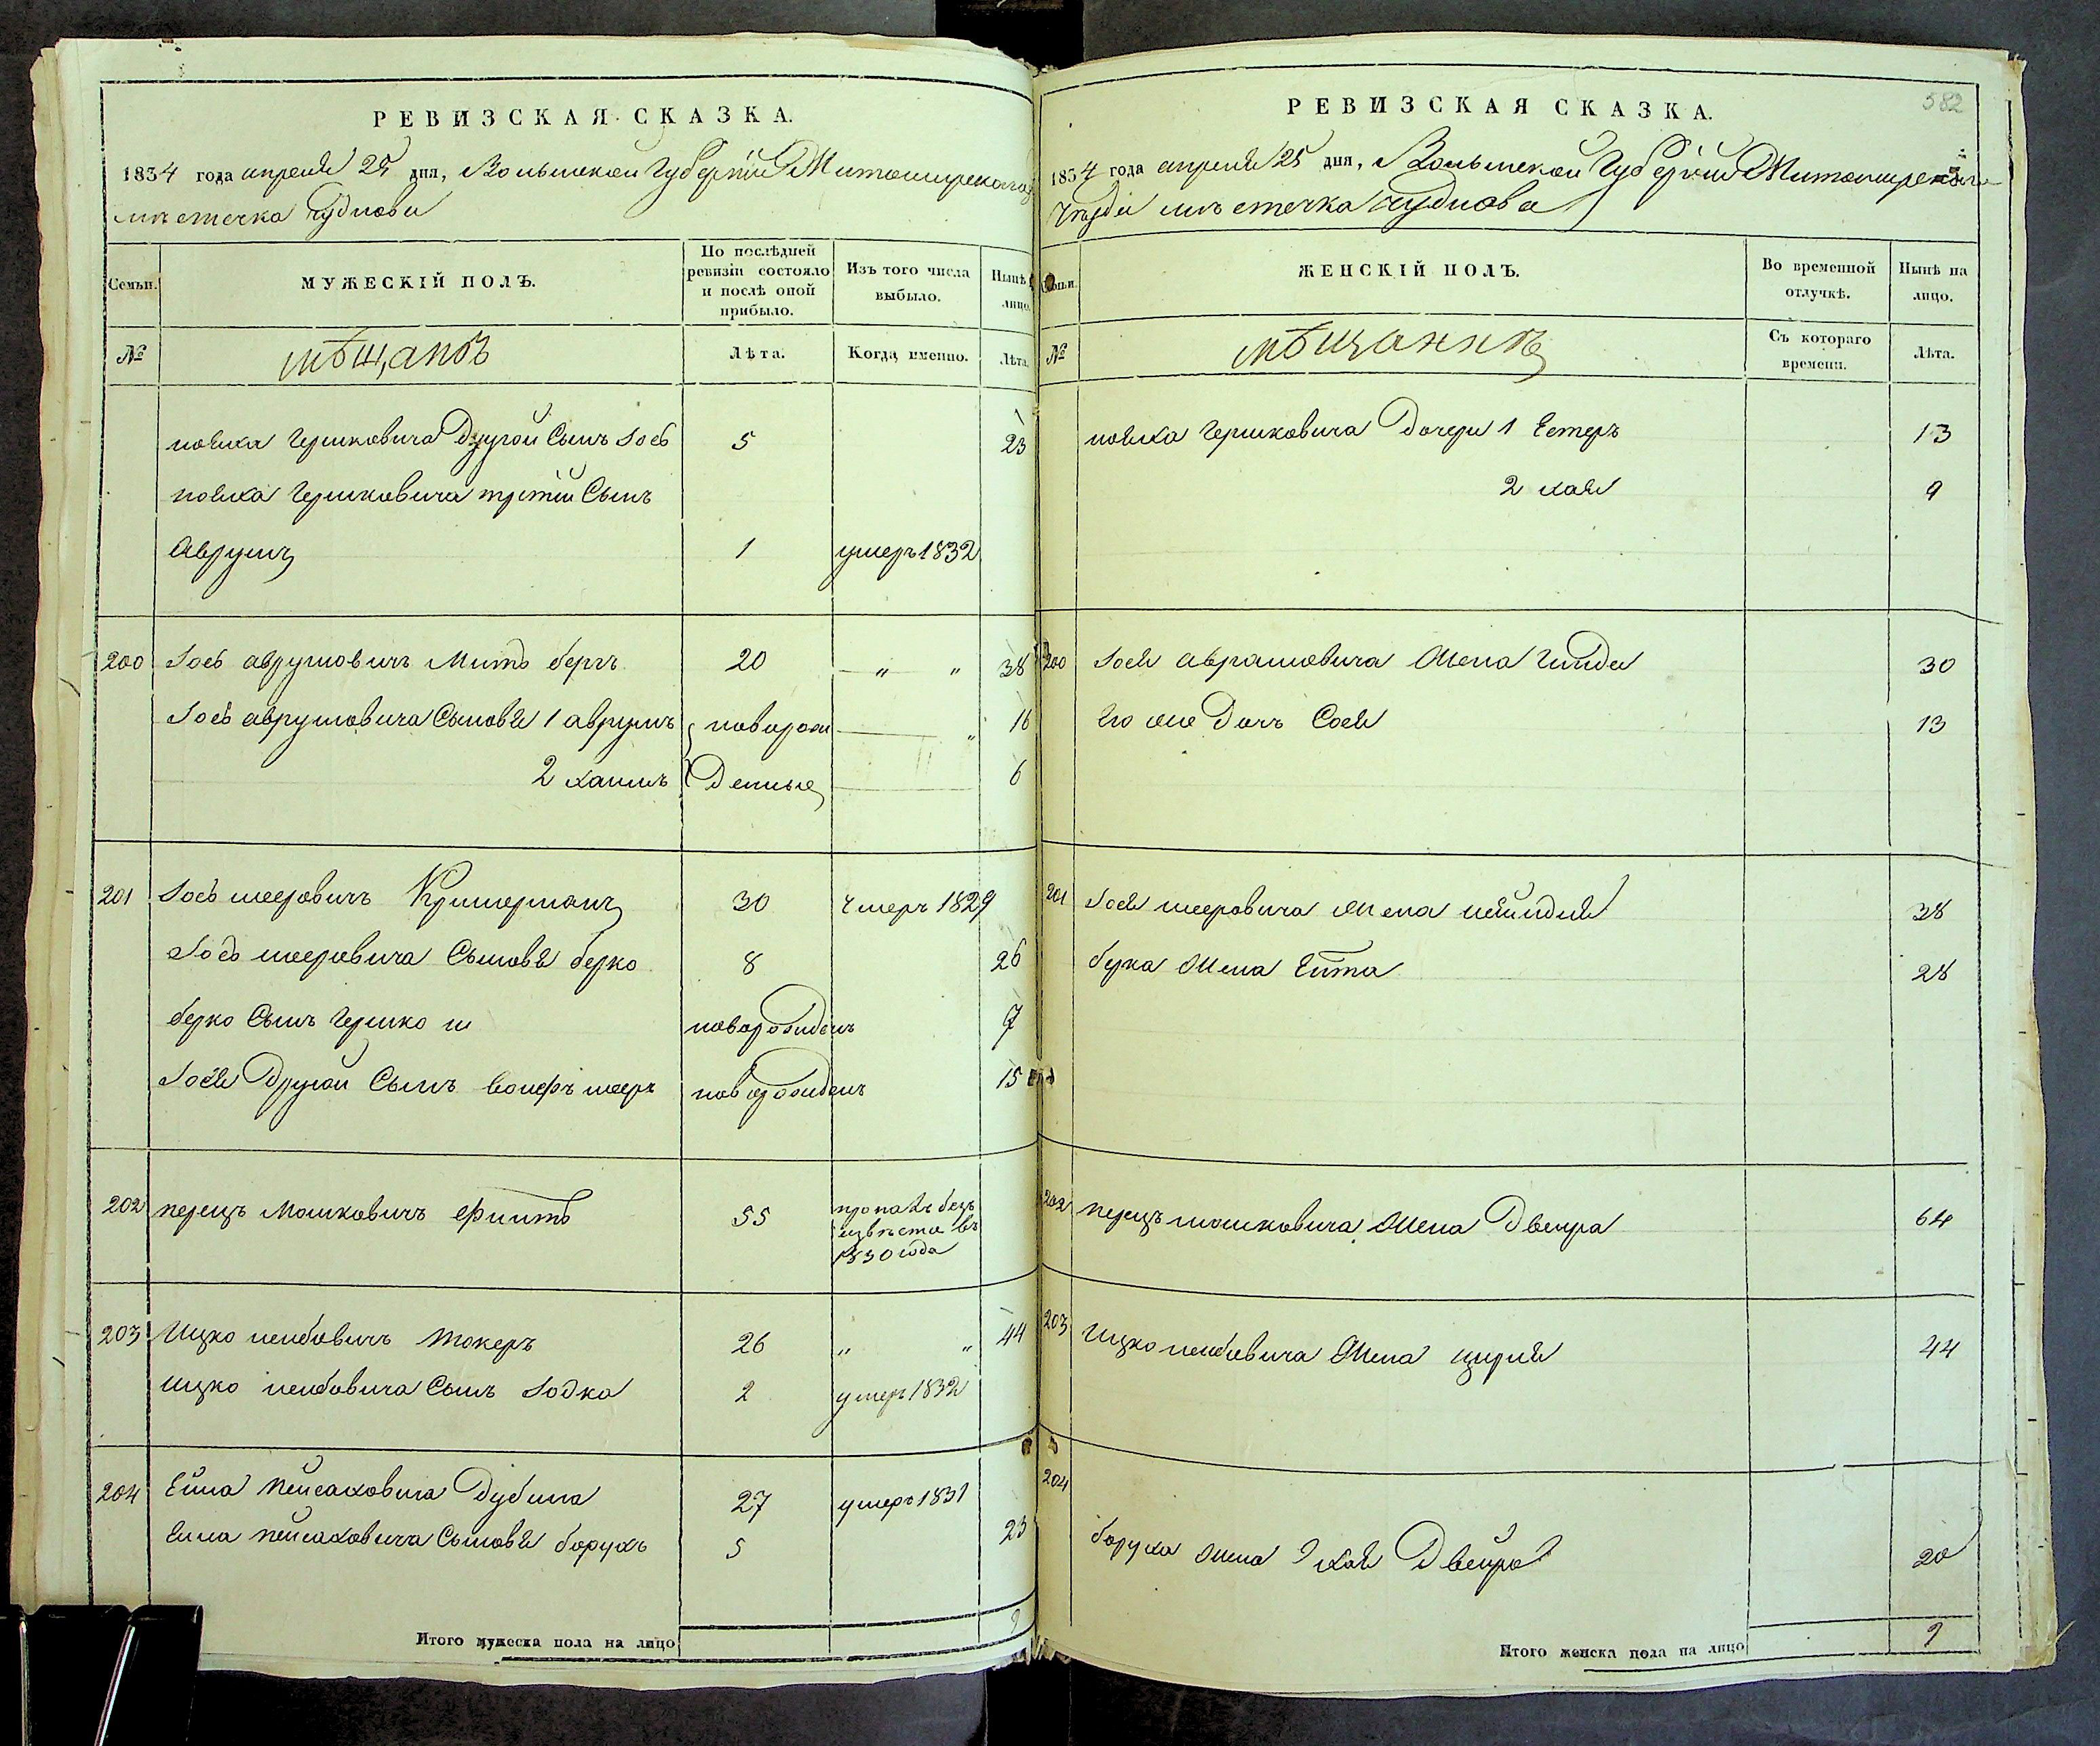 РЕВИЗСКАЯ СКАЗКА.
1834 года апреля 25 дня, Волынской Губерніи Житомирскаго
мѣстечка Чуднова
Семьи.
МУЖЕСКІЙ ПОЛЪ.
По послѣдней ревизіи состояло и послѣ оной прибыло.
Изъ того числа выбыло.
Нынѣ лицо.
№
мѣщанъ
Лѣта.
Когда именно.
Лѣта.
Гершковича Другой Сынъ Іось 5 23
Гершковича третій Сынъ
Аврумъ 1 умеръ 1832
200 Іось аврумовичъ бергъ 20 „ „ 38
Іось аврумовича Сыновя 1 аврумъ новорож 16
2 хаимъ денные 6
201 Іось мееровичъ Кримерманъ 30 умеръ 1829
Іось мееровича Сыновя берко 8 26
берко Сынъ Гершко новорожденъ 7
Іося Другой Сынъ мееръ новорожденъ 15
202 перецъ Мошковичъ 55 пропалъ безъ
извѣстно въ
1830 года
203 Ицко лейбовичъ токеръ 26 „ „ 44
ицко лейбовича Сынъ Іодка 2 умеръ 1832
204 Пейсаховича Дубина 27 умеръ 1831
пейсаховича Сыновя борухъ 5 23
Итого мужеска пола на лицо 9
РЕВИЗСКАЯ СКАЗКА.
582
1834 года апреля 25 дня, Волынской Губерніи Житомирскаго
уезда мѣстечка Чуднова
Семьи.
ЖЕНСКІЙ ПОЛЪ.
Во временной отлучкѣ.
Нынѣ на лицо.
№
мѣщанкъ
Съ котораго времени.
Лѣта.
Гершковича Дочери 1 Естеръ 13
2 хая 9
200 Іося аврамовича Жена Гинда 30
Его же Дочь Сося 13
201 Іося мееровича Жена 38
берка Жена Ента 28
202 перецъ мошковича Жена Двейра 64
203 Ицко лейбовича Жена цирля 44
204
боруха жена хая Двейра 20
Итого женска пола на лицо 9